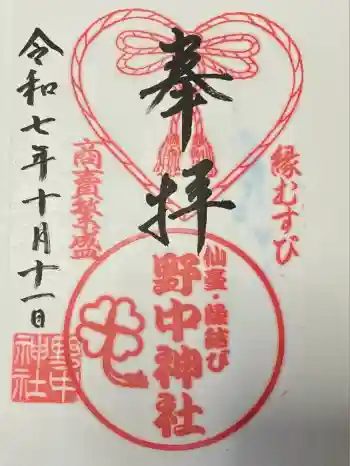 奉拝
縁むすび
商売繁盛
仙臺・縁結び
野中神社
令和七年十月十一日
野中
神社